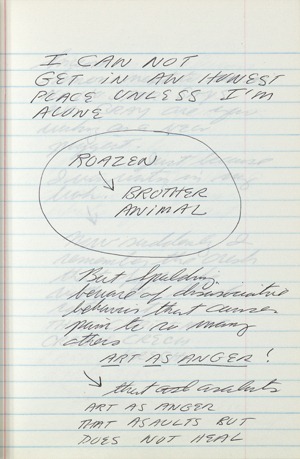 I CAN NOT
GET IN AN HONEST
PLACE UNLESS I'M
ALONE
ROAZEN
BROTHER
ANIMAL
But Spalding
beware of
behavior that causes
pain to so many
others
ART AS ANGER!
that asalts
ART AS ANGER
THAT ASAULTS BUT
DOES NOT HEAL